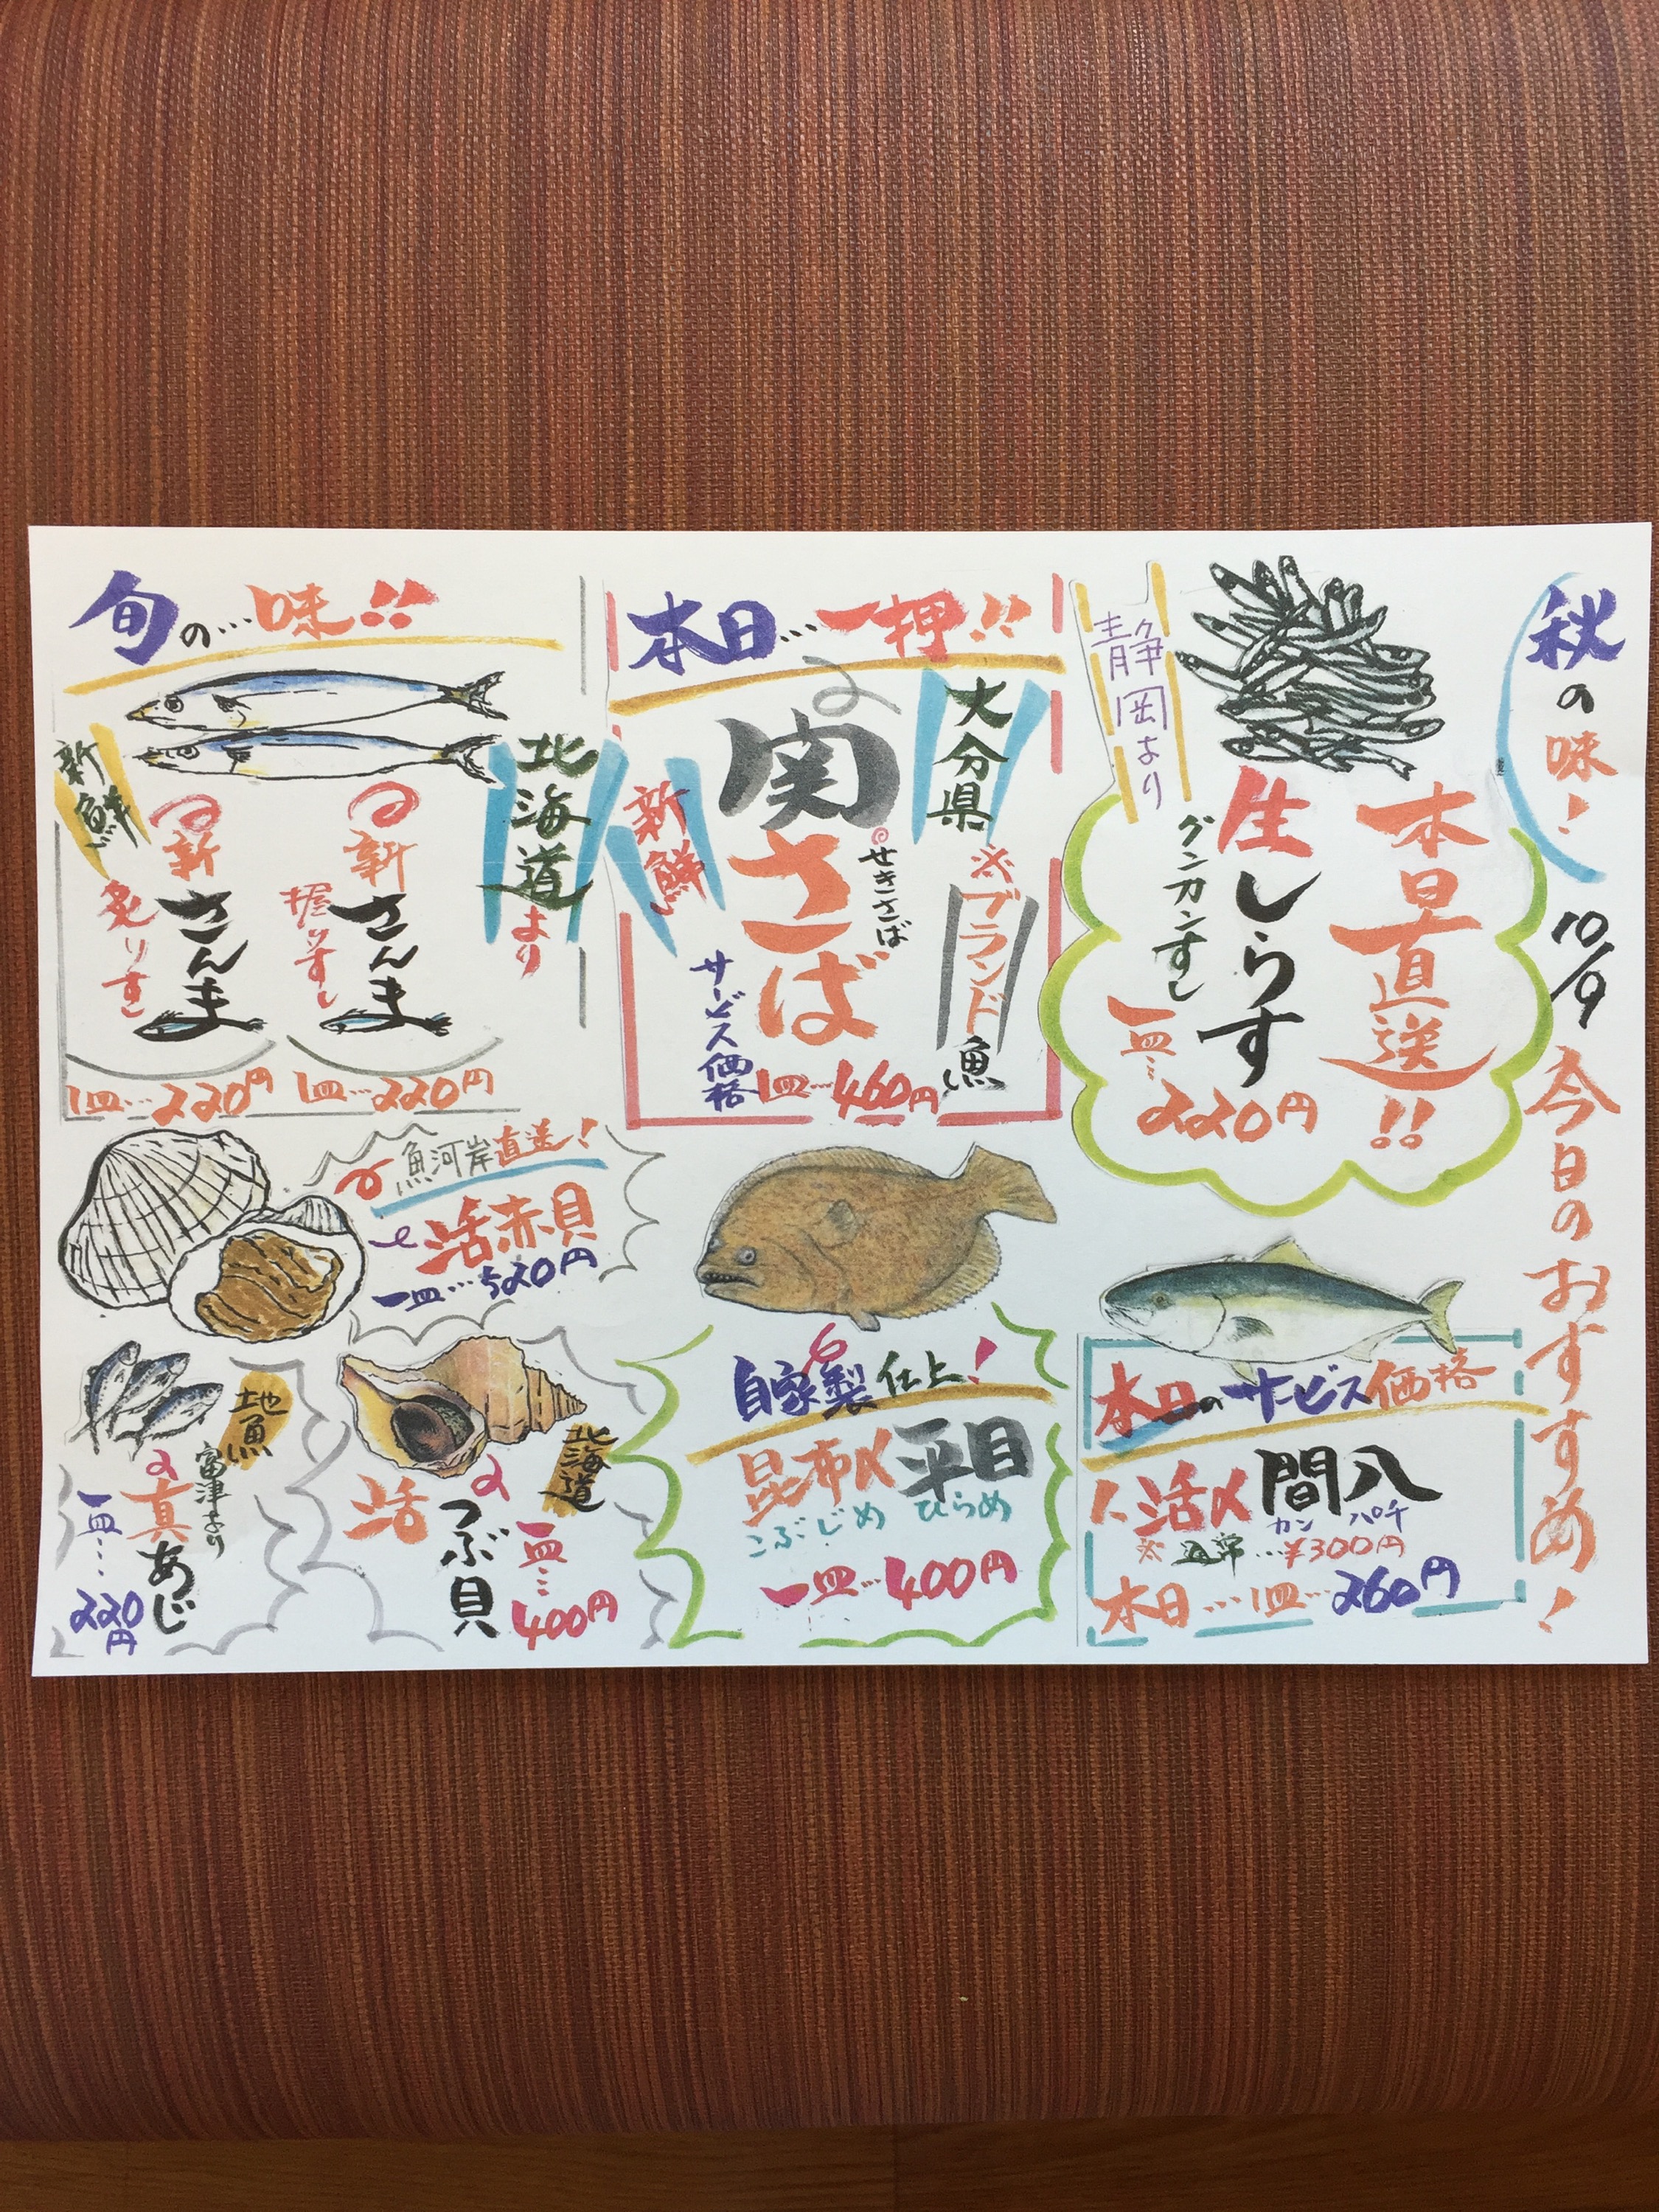 秋の味!
10/9 今日のおすすめ!
静岡より
本日直送!!
生しらす
グンカンすし
一皿…220円
本日…一押!!
大分県
※ブランド魚
関さば
せきさば
新鮮
サービス価格
1皿…460円
旬の…味!!
北海道より
新鮮
新さんま
握りすし
1皿…220円
新さんま
炙りすし
1皿…220円
本日のサービス価格
活〆間八
カンパチ
※通常…¥300円
本日…1皿…260円
自家製仕上!
昆布〆平目
こぶじめ ひらめ
一皿…400円
魚河岸直送!
活赤貝
一皿…520円
北海道
活つぶ貝
一皿…400円
地魚
富津より
真あじ
一皿…220円